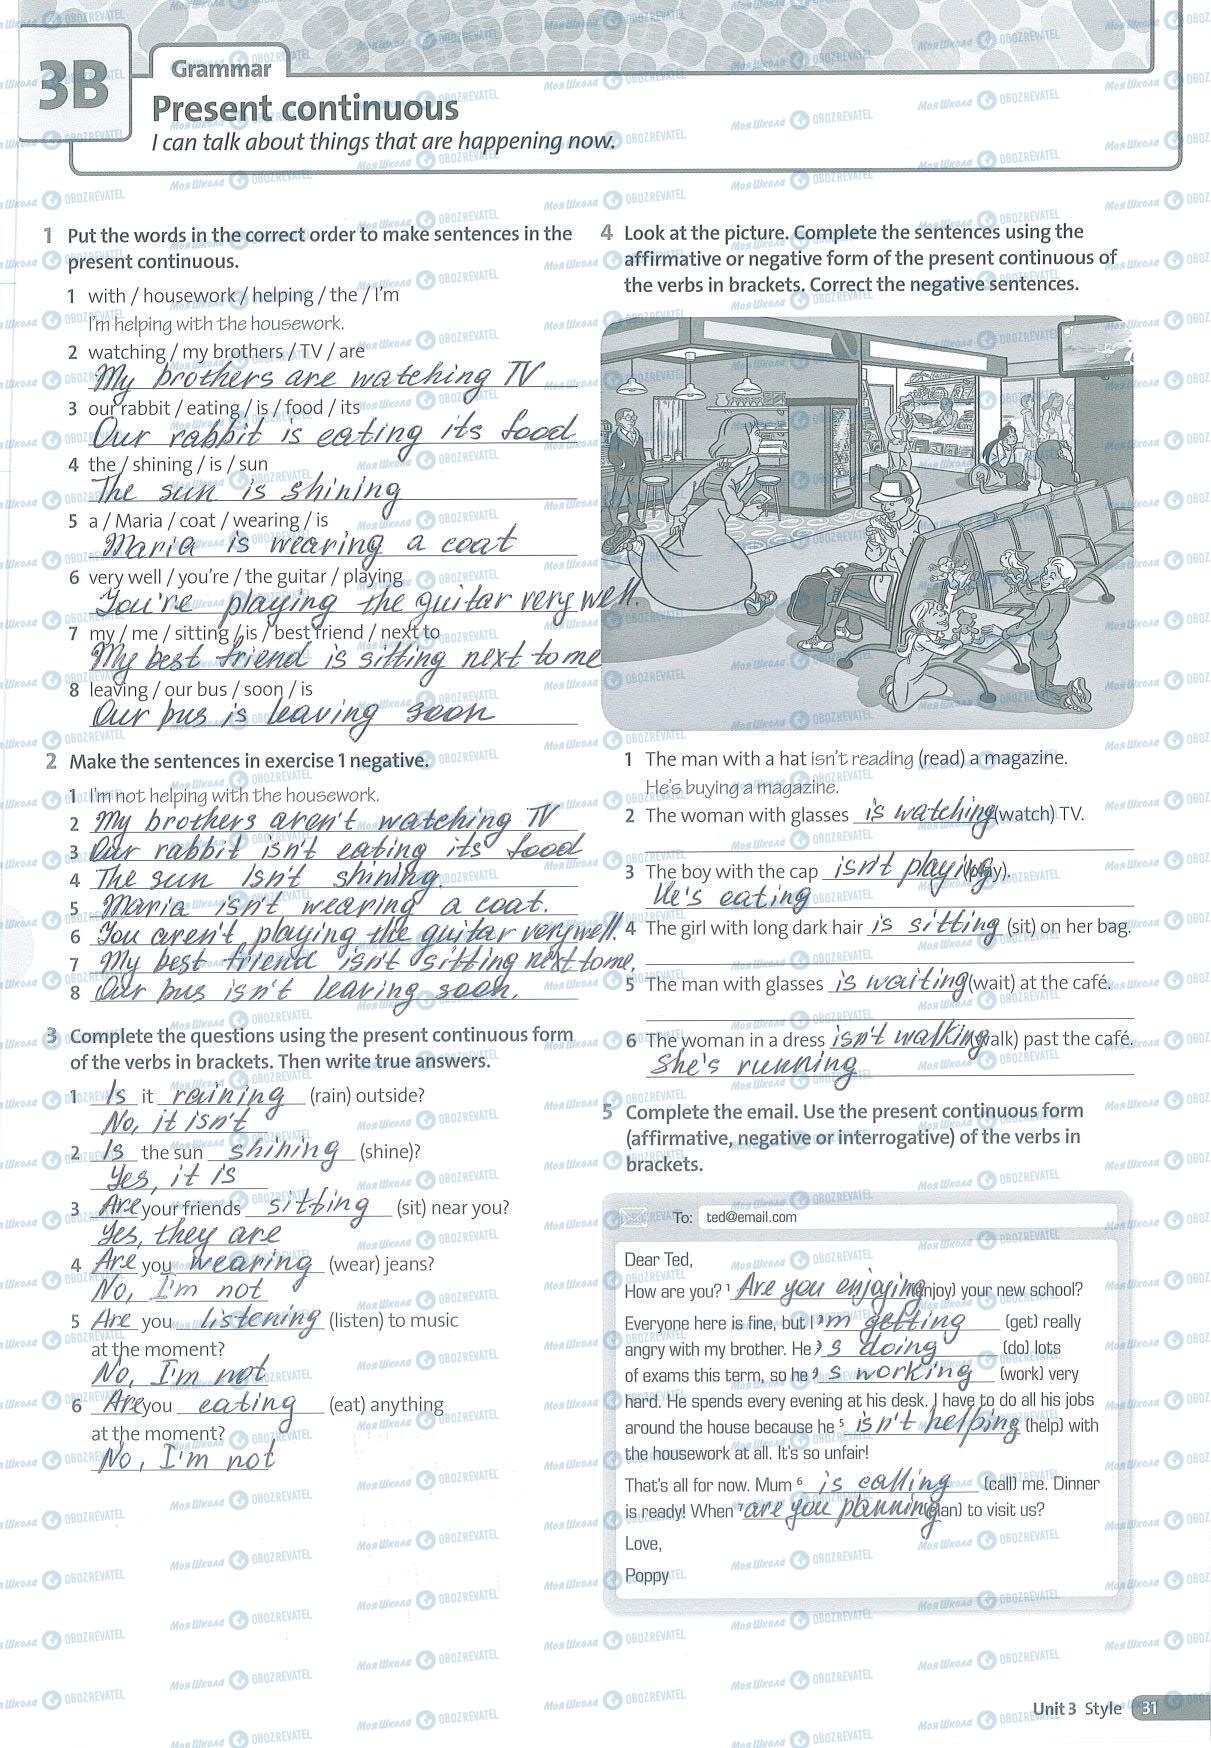 3B
Grammar
Present continuous
I can talk about things that are happening now.
1 Put the words in the correct order to make sentences in the
present continuous.
1 with / housework / helping / the / I'm
I'm helping with the housework.
2 watching / my brothers / TV / are
My brothers are watching TV
3 our rabbit / eating / is / food / its
Our rabbit is eating its food
4 the / shining / is / sun
The sun is shining
5 a / Maria / coat / wearing / is
Maria is wearing a coat
6 very well / you're / the guitar / playing
You're playing the guitar very well.
7 my / me / sitting / is / best friend / next to
My best friend is sitting next to me
8 leaving / our bus / soon / is
Our bus is leaving soon
2 Make the sentences in exercise 1 negative.
1 I'm not helping with the housework.
2 My brothers aren't watching TV
3 Our rabbit isn't eating its food
4 The sun isn't shining.
5 Maria isn't wearing a coat.
6 You aren't playing the guitar very well.
7 My best friend isn't sitting next to me.
8 Our bus isn't leaving soon.
3 Complete the questions using the present continuous form
of the verbs in brackets. Then write true answers.
1 Is it raining (rain) outside?
No, it isn't
2 Is the sun shining (shine)?
Yes, it is
3 Are your friends sitting (sit) near you?
Yes, they are
4 Are you wearing (wear) jeans?
No, I'm not
5 Are you listening (listen) to music
at the moment?
No, I'm not
6 Are you eating (eat) anything
at the moment?
No, I'm not
4 Look at the picture. Complete the sentences using the
affirmative or negative form of the present continuous of
the verbs in brackets. Correct the negative sentences.
1 The man with a hat isn't reading (read) a magazine.
He's buying a magazine.
2 The woman with glasses is watching (watch) TV.
3 The boy with the cap isn't playing (play).
He's eating
4 The girl with long dark hair is sitting (sit) on her bag.
5 The man with glasses is waiting (wait) at the café.
6 The woman in a dress isn't walking (walk) past the café.
She's running
5 Complete the email. Use the present continuous form
(affirmative, negative or interrogative) of the verbs in
brackets.
To: ted@email.com
Dear Ted,
How are you? 1 Are you enjoying (enjoy) your new school?
Everyone here is fine, but I 'm getting (get) really
angry with my brother. He 's doing (do) lots
of exams this term, so he 's working (work) very
hard. He spends every evening at his desk. I have to do all his jobs
around the house because he 5 isn't helping (help) with
the housework at all. It's so unfair!
That's all for now. Mum 6 is calling (call) me. Dinner
is ready! When 7 are you planning (plan) to visit us?
Love,
Poppy
Unit 3 Style 31
МояШкола OBOZREVATEL